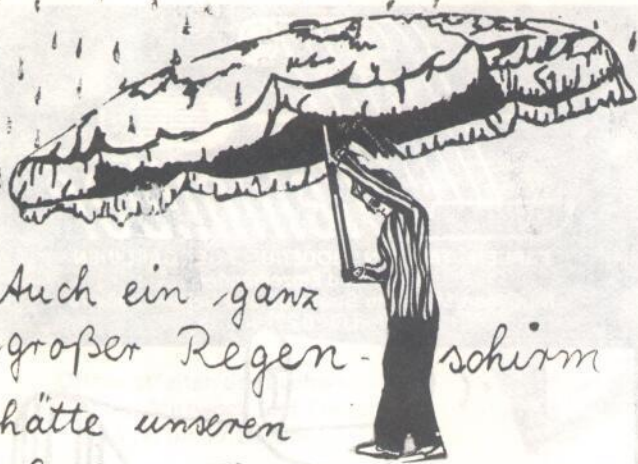 Auch ein ganz
großer Regen-schirm
hätte unseren